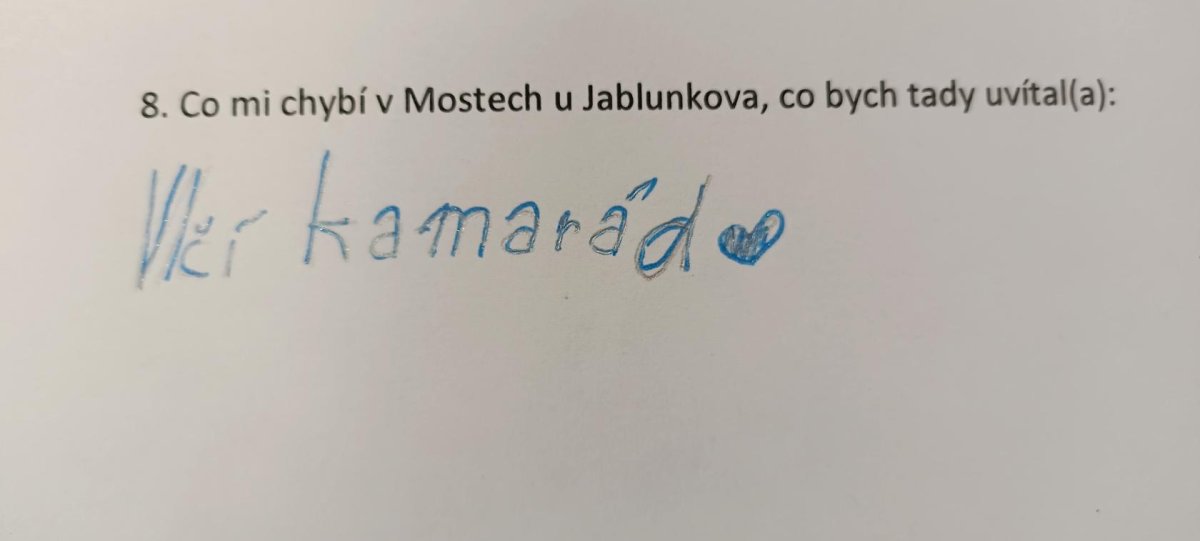 8. Co mi chybí v Mostech u Jablunkova, co bych tady uvítal(a):
kamarád